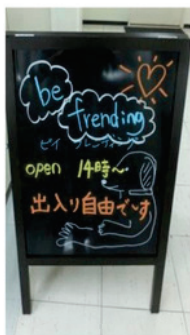 be
frending
ビィ フレンディング
open 14時~
出入り自由です